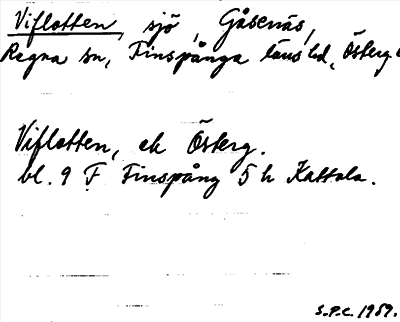 Viflotten, sjö, Gåsenäs,
Regna sn, Finspånga läns hd, Österg
Viflotten, ek Österg.
bl. 9 F Finspång 5 h Kattala.
S.P.C. 1959.